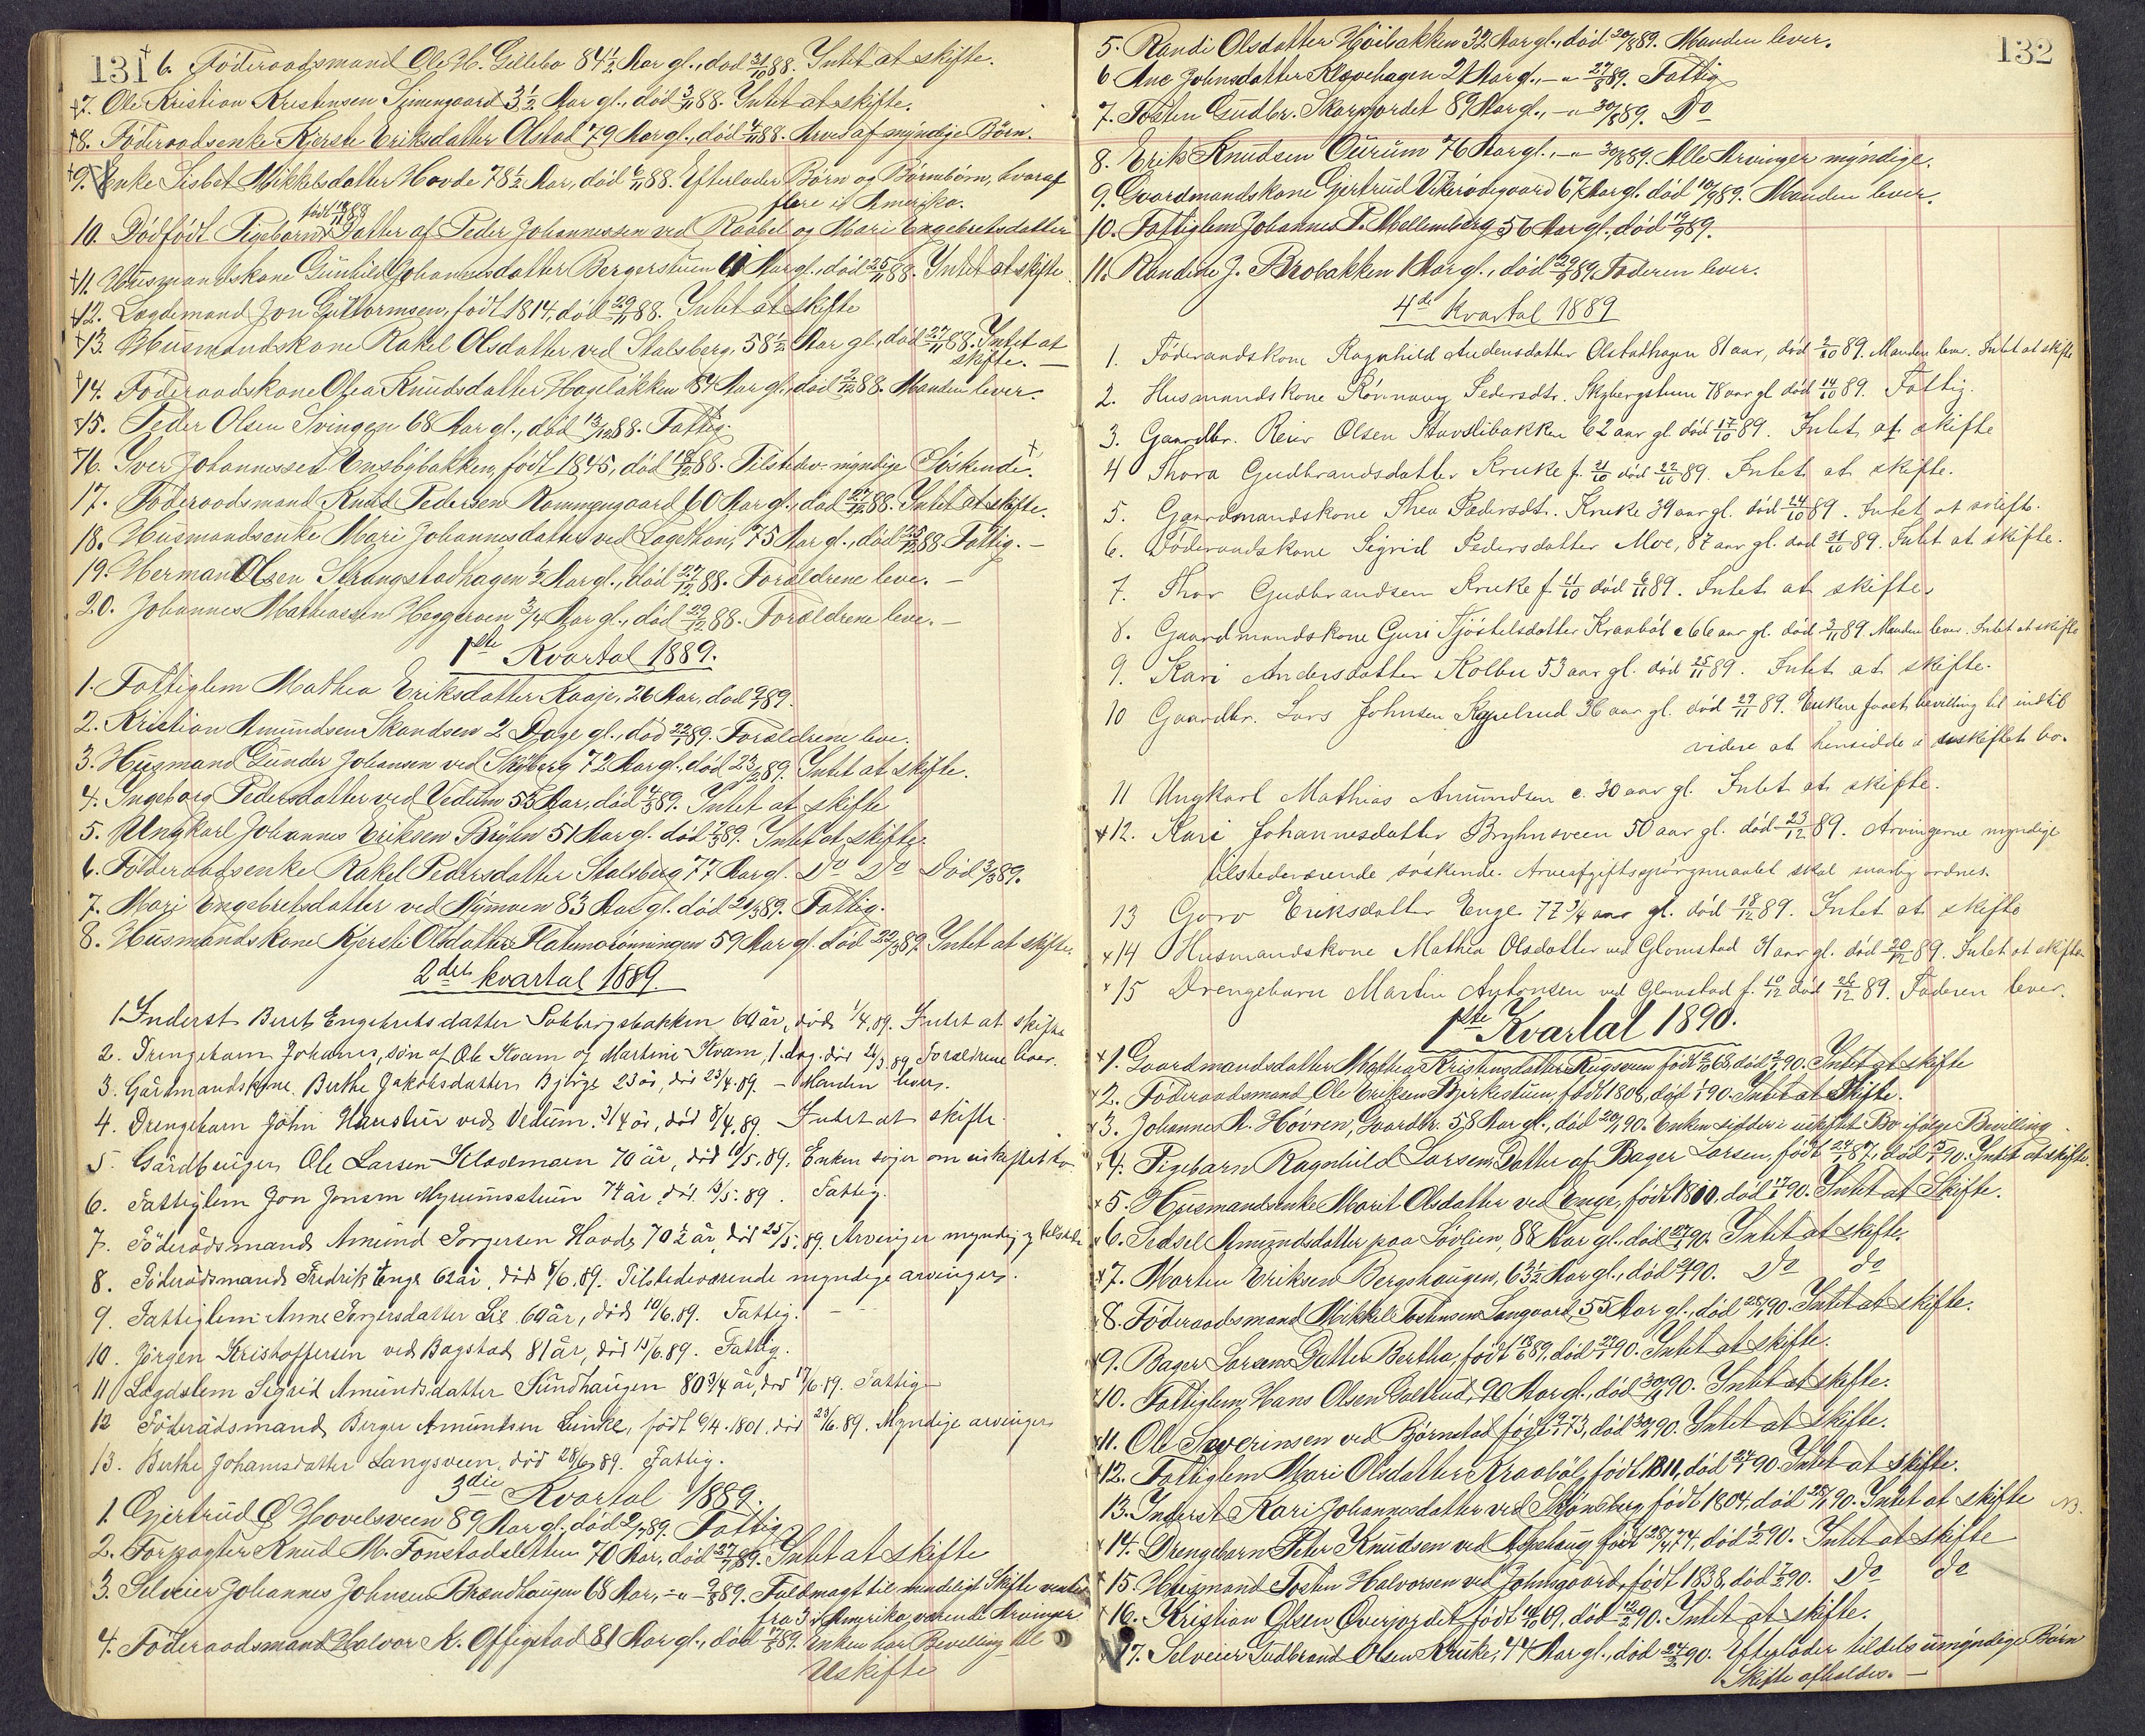 131
6. Föderaadsmand Ole H. Gillebo 84½ Aar gl., död 31/10 88. Intet at skifte.
7. Ole Kristian Kristensen Simengaard 3½ Aar gl., död 3/11 88. Intet at skifte.
8. Föderaadsenke Kjersti Eriksdatter Olstad 79 Aar gl., död 4/11 88. Arves af myndige Börn.
9. Enke Lisbet Mikkelsdatter Hovde 78½ Aar, död 6/11 88. Efterlader Börn og Börnebörn, hvoraf
flere i Amerika.
född 18/11 88
10. Dödfödt Pigebarn, Datter af Peder Johannessen ved Raabel og Mari Engebretsdatter
11. Husmandskone Gunhild Johannesdatter Bergerstuen Aar gl., död 25/11 88. Intet at skifte.
12. Lægdemand Jon Guttormsen, född 1814, död 29/11 88. Intet at skifte
13. Husmandskone Rakel Olsdatter ved Stalsberg, 58½ Aar gl., död 27/11 88. Intet at
skifte. —
14. Föderaadskone Olea Knudsdatter Hageløkken 84 Aar gl., död 2/12 88. Manden lever.
15. Peder Olsen Svingen 68 Aar gl., död 13/12 88. Fattig.
16. Iver Johannessen Ensbybakken, född 1845, död 18/12 88. Tilstedev. myndige Söskende.
17. Föderaadsmand Knud Pedersen Rommengaard 60 Aar gl., död 27/12 88. Intet at skifte.
18. Husmandsenke Mari Johannesdatter ved 75 Aar gl., död 25/12 88. Fattig. —
19. Herman Olsen Strangstadhagen ½ Aar gl., död 27/12 88. Forældrene leve. —
20. Johannes Mathiassen Heggeroen 3/4 Aar gl., död 29/12 88. Forældrene leve. —
1ste Kvartal 1889.
1. Fattiglem Mathea Eriksdatter Kaaje, 26 Aar, död 9/1 89.
2. Kristian Amundsen Skandsen 2 Dage gl., död 22/1 89. Forældrene leve.
3. Husmand Gunder Johansen ved Skyberg 72 Aar gl., död 23/2 89. Intet at skifte.
4. Ingeborg Pedersdatter ved Vedum 53 Aar, död 4/3 89. Intet at skifte
5. Ungkarl Johannes Eriksen Bryhn 51 Aar gl. död 89. Intet at skifte
6. Föderaadsenke Rakel Pedersdatter Stalsberg 77 Aar gl. Do Do Död 3/3 89.
7. Mari Engebretsdatter ved Nymoen 83 Aar gl. död 20/3 89. Fattig.
8. Husmandskone Kjersti Olsdatter Flatmorönningen 59 Aar gl. död 22/3 89. Intet at skifte.
2det kvartal 1889.
1. Inderst Berit Engebretsdatter 69 år, död 1/4 89. Intet at skifte
2. Drengebarn Johannes, sön af Ole Kvam og Martine Kvam, 1. dag. död 24/3 89 Forældrene lever.
3. Gårdmandskone Berthe Jakobsdatter Björge 23 år, död 23/4. 89. – Manden lever.
4. Drengebarn John Haustur ved Vedum. 3/4 år, död 8/4. 89. Intet at skifte.
5. Gårdbruger Ole Larsen Klovemoen 70 år, död 10/5. 89. Enken söger om uskiftet bo.
6. Fattiglem Jon Jonsen Myrumsstuen 74 år, död 13/5. 89. Fattig.
7. Föderådsmand Amund Torgersen Hovde 70½ år död 25/5. 89. Arvinger myndig og tilstede
8. Föderådsmand Fredrik Enge 62 år, död 8/6. 89. Tilstedeværende myndige arvinger.
9. Fattiglem Anne Torgersdatter Lie 69 år, död 10/6. 89. Fattig.
10. Jörgen Kristoffersen ved Bagstad 81 år, död 15/6. 89. Fattig.
11. Lægdslem Sigrid Amundsdatter Sundhaugen 80 3/4 år, död 17/6. 89. Fattig
12. Föderådsmand Berger Amundsen Lunke, född 6/4. 1801. död 23/6. 89. Myndige arvinger
13. Berthe Johannesdatter Langsveen, död 28/6 89. Fattig.
3die Kvartal 1889.
1. Gjertrud O. Hovelsveen 89 Aar gl. död 2/7 89. Fattig
2. Forpagter Knud M. Fonstadsletten 70 Aar, död 27/7 89. Intet at skifte
3. Selveier Johannes Johnsen Brandhaugen 68 Aar, -"- 9/8 89. Fuldmagt til mindeligt Skifte ventes
fra 3 i Amerika værende Arvinger
4. Föderaadsmand Halvor K. Offigstad 81 Aar gl., död 17/8 89. Enken har Bevilling til
Uskifte
132
5. Randi Olsdatter Höibakken 32 Aar gl., död 20/8 89. Manden lever.
6. Ane Johnsdatter Klovehagen 21 Aar gl., -"- 27/8 89. Fattig
7. Tosten Gudbr. Skarpjordet 89 Aar gl., -"- 30/8 89. Do
8. Erik Knudsen Ourum 76 Aar gl., -"- 30/8 89. Alle Arvinger myndige.
9. Gaardmandskone Gjertrud Vikerödegaard 67 Aar gl. död 10/9 89. Manden lever.
10. Fattiglem Johannes P. Mellemberg 56 Aar gl., död 19/9 89.
11. Randine J. Brobakken 1 Aar gl., död 29/9 89. Faderen lever.
4de Kvartal 1889
1. Föderaadskone Ragnhild Audensdatter Olstadhagen 81 aar, död 2/10 89. Manden lever. Intet at skifte
2. Husmandskone Rönnaug Pedersdtr. Skybergstuen 78 aar gl död 14/10 89. Fattig.
3. Gaardbr. Reier Olsen Stavslibakken 62 aar gl död 17/10 89. Intet at skifte
4 Thora Gudbrandsdatter Kruke f. 21/10 död 22/10 89. Intet at skifte.
5. Gaardmandskone Thea Pedersdt. Kruke 39 aar gl. död 24/10 89. Intet at skifte.
6. Föderaadskone Sigrid Pedersdatter Moe, 87 aar gl. död 31/10 89. Intet at skifte.
7. Thor Gudbrandsen Kruke f. 21/10 död 6/11 89. Intet at skifte.
8. Gaardmandskone Guri Tjöstelsdatter Kraaböl c 66 aar gl. död 3/11 89. Manden lever. Intet at skifte
9. Kari Andersdatter Kolbu 53 aar gl. död 25/11 89. Intet at skifte.
10 Gaardbr. Lars Johnsen Kapelrud 36 aar gl. död 29/11 89. Enken faaet bevilling til indtil
videre at hensidde i uskiftet bo.
11 Ungkarl Mathias Amundsen c. 30 aar gl. Intet at skifte.
12. Kari Johannesdatter Bryhnsveen 50 aar gl. död 23/12 89. Arvingerne myndige
tilstedeværende söskende. Arveafgiftsspörgsmaalet skal snarlig ordnes.
13 Goro Eriksdatter Enge 77 3/4 aar gl. död 18/12 89. Intet at skifte
14 Husmandskone Mathea Olsdatter ved Glomstad 31 aar gl. död 20/12 89. Intet at skifte
15 Drengebarn Martin Antonsen ved Glomstad f. 10/12 död 26/12 89. Faderen lever.
1ste Kvartal 1890.
1. Gaardmandsdatter Mathea Kristensdatter Rugsveen född 68, död 90. Intet at skifte
2. Föderaadsmand Ole Eriksen Birkestuen, född 1808, död 90. Intet at Skifte.
3. Johannes A. Hovren, Gaardbr. 58 Aar gl., död 20/1 90. Enken sidder i uskiftet Bo ifölge Bevilling.
4. Pigebarn Ragnhild Larsen, Datter af Bager Larsen, född 24/1 87, död 15/1 90. Intet at skifte.
5. Husmandsenke Marit Olsdatter ved Enge, född 1810, död 17/1 90. Intet at Skifte.
6. Sedsel Amundsdatter paa Lövlien, 88 Aar gl., död 27/1 90. Intet at skifte.
7. Martin Eriksen Bergshaugen, 63½ Aar gl., död 90. Do do
8. Föderaadsmand Mikkel Tostensen Langaard, 55 Aar gl., död 28/1 90. Intet at skifte.
9. Bager Larsens Datter Bertha, född 18/6 89, död 29/1 90. Intet at skifte.
10. Fattiglem Hans Olsen Galtrud, 90 Aar gl., död 30/1 90. Intet at skifte.
11. Ole Severinsen ved Björnstad född 73, död 30/1 90. Intet at skifte.
12. Fattiglem Mari Olsdatter Kraaböl, född 1811, död 24/1 90. Intet at skifte.
13. Inderst Kari Johannesdatter ved Skönsberg född 1804. död 25/1 90. Intet at skifte NB.
14. Drengebarn Peter Knudsen ved Aspehaug född 28/4 74, död 1/2 90. Intet at skifte
15. Husmand Tosten Halvorsen ved Johnsgaard, född 1838, död 7/2 90. Do do
16. Kristian Olsen Överjordet, född 69, död 12/2 90. Intet at skifte.
17. Selveier Gudbrand Olsen Kruke, 44 Aar gl., död 24/2 90. Efterlader tildels umyndige Börn
Skifte afholdes. —